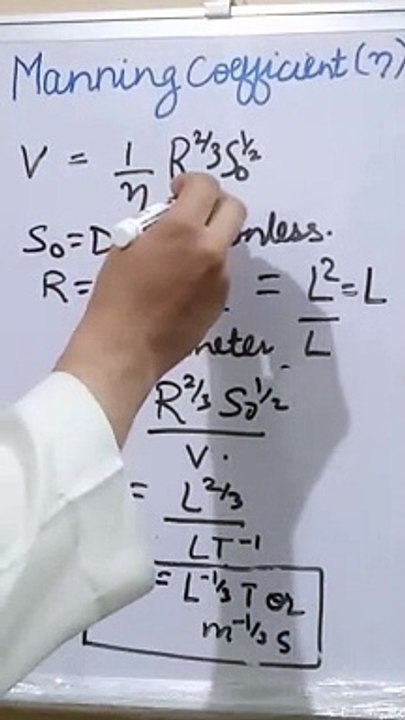 Manning Coefficient (η)
V = 1/η R^2/3 S₀^1/2
S₀ = D
R = = L²/L = L
R^2/3 S₀^1/2 / V.
= L^2/3 / LT⁻¹
= L^-1/3 T or
m^-1/3 s